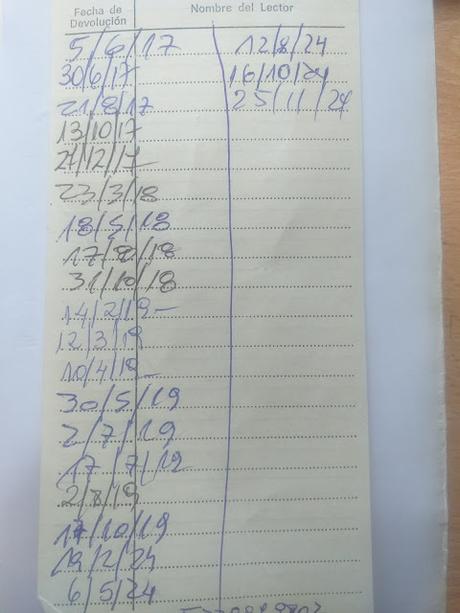 Fecha de Devolución
Nombre del Lector
5/6/17
30/6/17
21/8/17
13/10/17
27/12/17
23/3/18
18/5/18
17/8/18
31/10/18
14/2/19-
12/3/19
10/4/19-
30/5/19
2/7/19
17/7/19
2/8/19
17/10/19
19/2/24
6/5/24
12/8/24
16/10/24
25/11/24